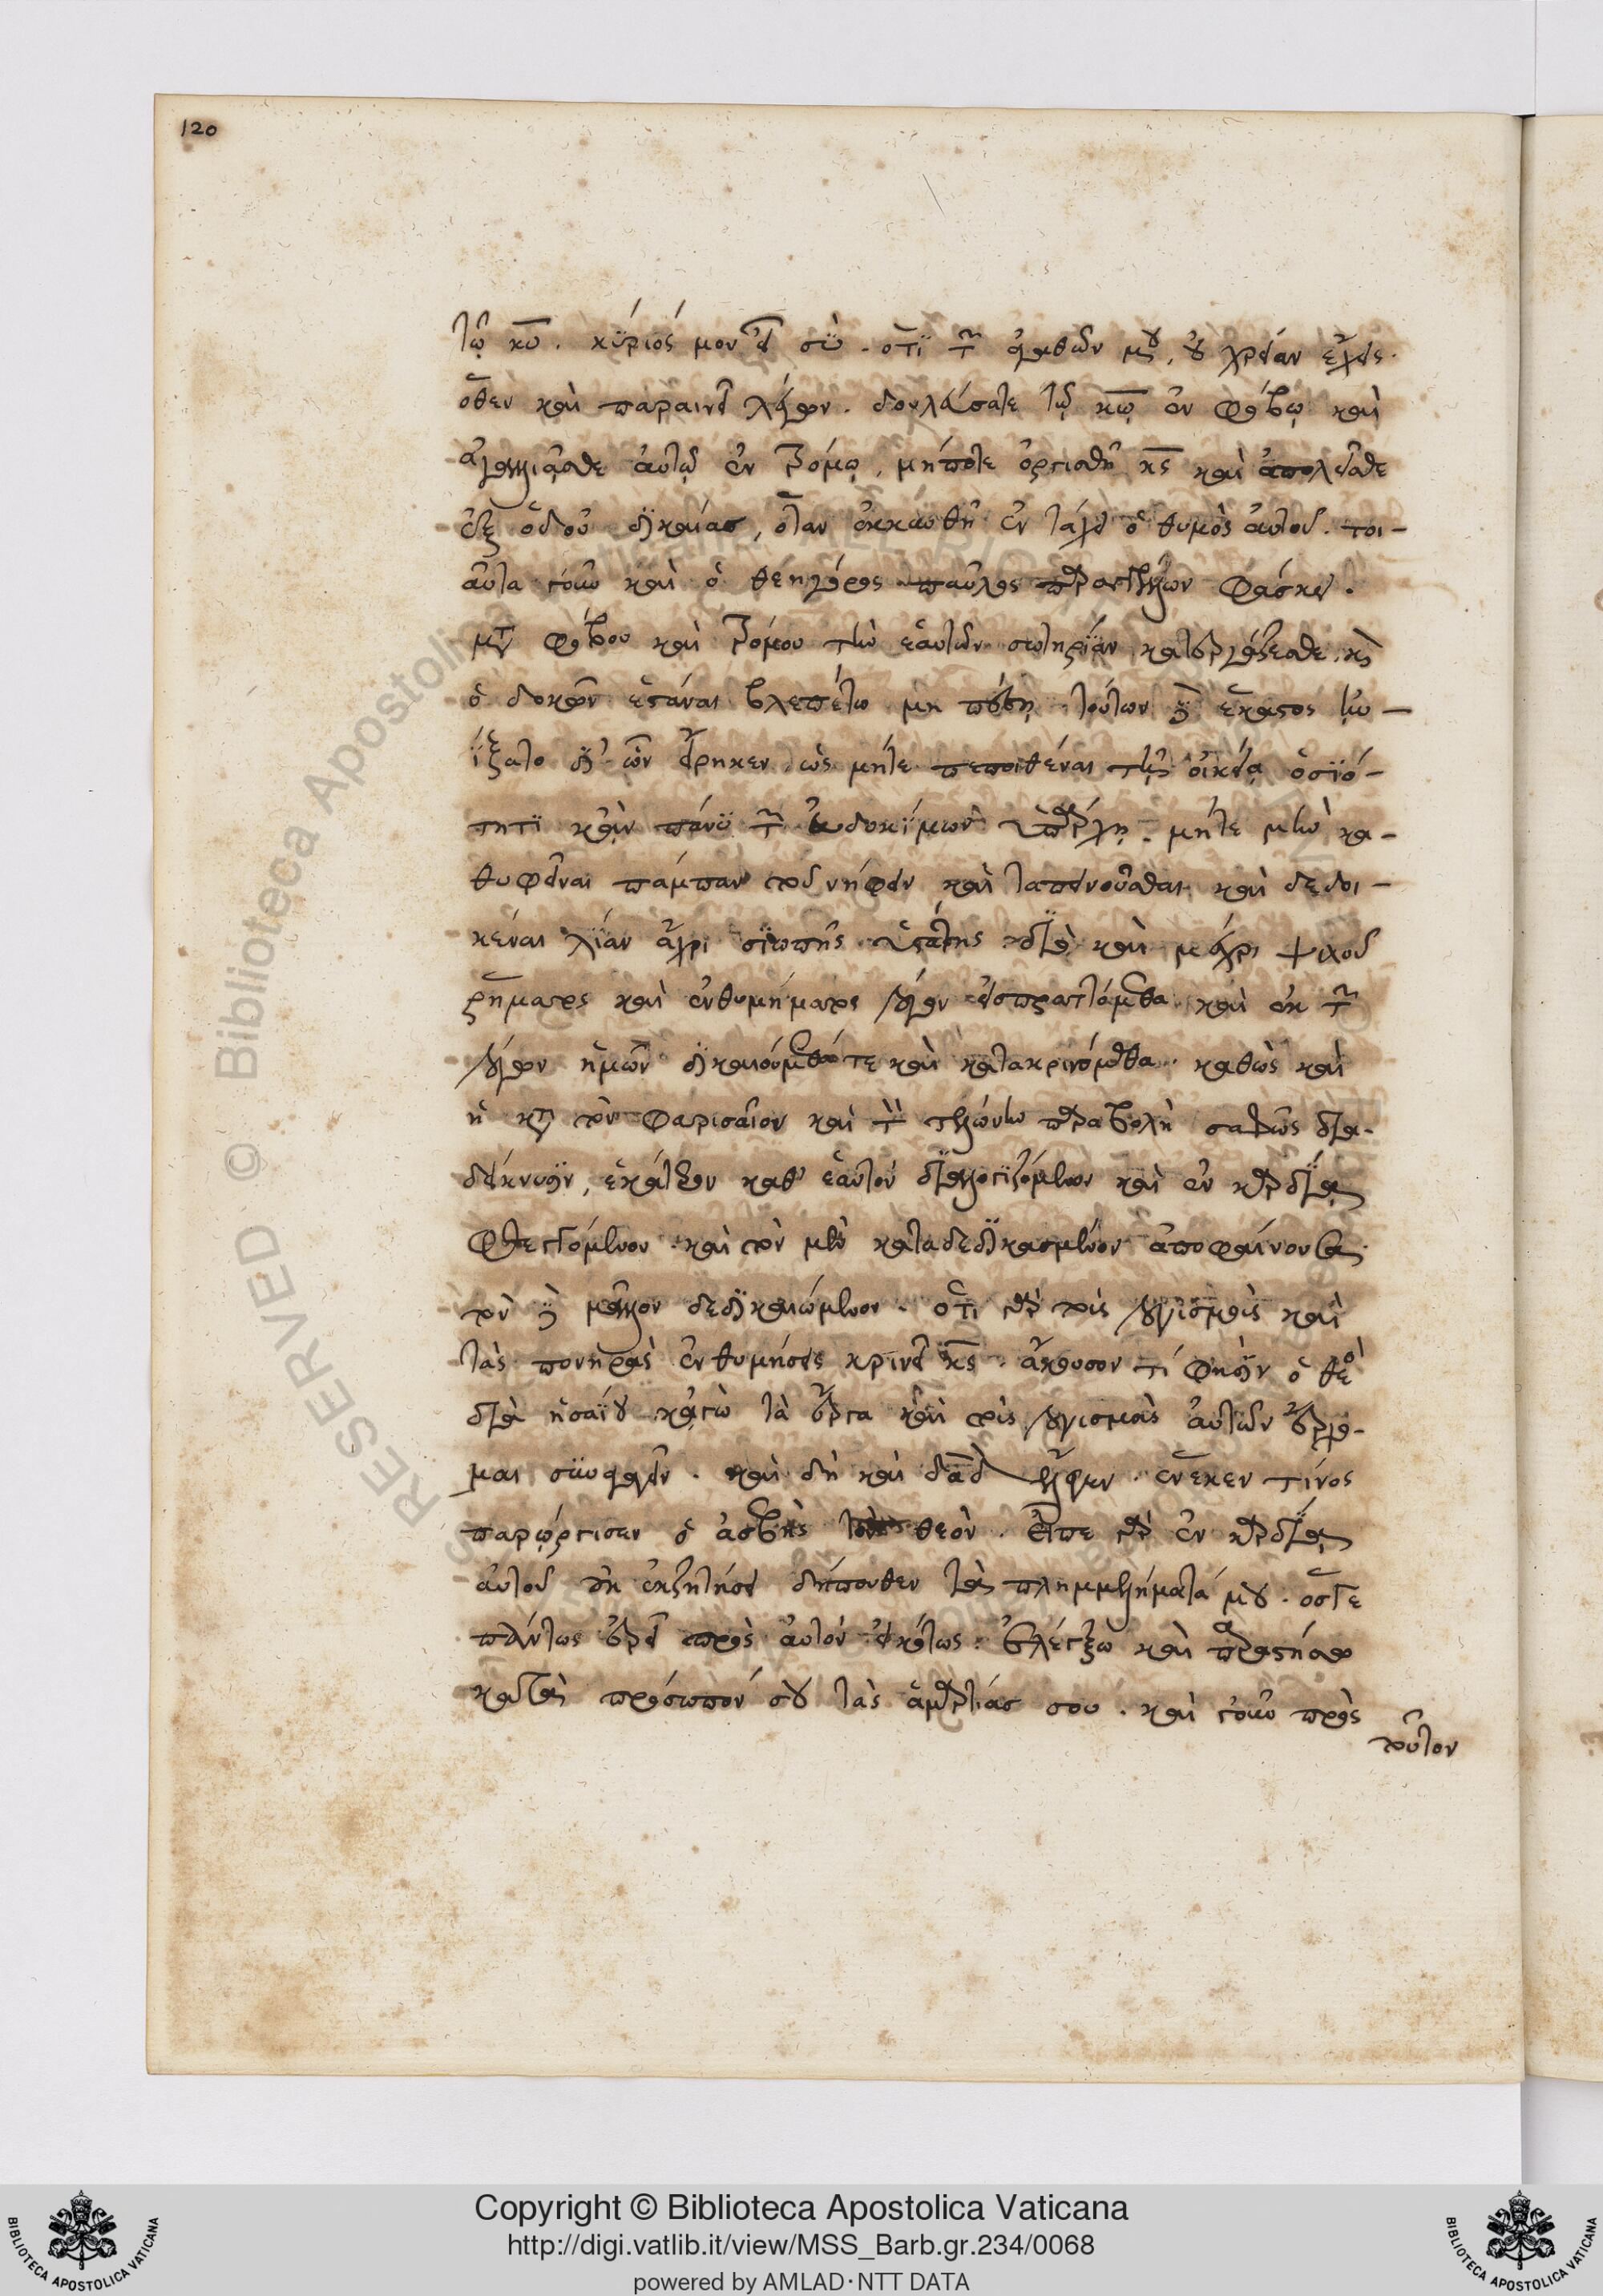 120
τῷ κω. κύριός μου εἶ σὺ. ὅτι τῶν ἀγαθῶν μου, οὐ χρείαν ἔχεις.
ὅθεν καὶ παραινεῖ λέγων. δουλεύσατε τῷ κω ἐν φόβῳ καὶ
ἀγαλλιᾶσθε αὐτῷ ἐν τρόμῳ, μήποτε ὀργισθῇ κς καὶ ἀπολεῖσθε
ἐξ ὁδοῦ δικαίας, ὅταν ἐκκαυθῇ ἐν τάχει ὁ θυμὸς αὐτοῦ. τοι-
αῦτα γοῦν καὶ ὁ θεηγόρος παῦλος παραγγέλλων φάσκει.
μετὰ φόβου καὶ τρόμου τὴν ἑαυτῶν σωτηρίαν κατεργάζεσθε. καὶ
ὁ δοκῶν ἑστάναι βλεπέτω μὴ πέσῃ. τούτων δὲ ἕκαστος
ᾐνίξατο δι' ὧν εἴρηκεν. ὡς μήτε πεποιθέναι τῇ οἰκείᾳ ὁσιό-
τητι κἂν πάνυ τῶν εὐδοκίμων ὑπάρχῃ. μήτε μὴν κα-
θυφεῖναι πάμπαν τοῦ νήφειν καὶ ταπεινοῦσθαι καὶ δεδοι-
κέναι λίαν ἄχρι σιωπῆς ὑστάτης. διὰ καὶ μέχρι ψιλοῦ
ῥήματος καὶ ἐνθυμήματος λόγον εἰσπραττόμεθα καὶ ἐκ τῶν
λόγων ἡμῶν δικαιούμεθά τε καὶ κατακρινόμεθα. καθὼς καὶ
ἡ κατὰ τὸν φαρισαῖον καὶ τὸν τελώνην παραβολὴ σαφῶς δια-
δείκνυσιν, ἑκάτερον καθ' ἑαυτὸν διαλογιζόμενον καὶ ἐν καρδίᾳ
φθεγγόμενον. καὶ τὸν μὲν καταδεδικασμένον ἀποφαίνουσα.
τὸν δὲ μᾶλλον δεδικαιωμένον. ὅτι γὰρ τοὺς λογισμοὺς καὶ
τὰς πονηρὰς ἐνθυμήσεις κρινεῖ κς. ἄκουσον τί φησὶν ὁ θεὸς
διὰ ἡσαΐου κἀγὼ τὰ ἔργα καὶ τοὺς λογισμοὺς αὐτῶν ἔρχο-
μαι συναγαγεῖν. καὶ δὴ καὶ δαδ ἔλεγεν. ἕνεκεν τίνος
παρώργισεν ὁ ἀσεβὴς τὸν θεὸν. εἶπε γὰρ ἐν καρδίᾳ
αὐτοῦ οὐκ ἐκζητήσει δήπουθεν τὰ πλημμελήματά μου. ὅστε
πάντως ἐρεῖ πρὸς αὐτὸν εἰκότως. ἐλέγξω καὶ παραστήσω
κατὰ πρόσωπόν σου τὰς ἁμαρτίας σου. καὶ γοῦν πρὸς
τοῦτον
© Biblioteca Apostolica Vaticana
Copyright © Biblioteca Apostolica Vaticana
http://digi.vatlib.it/view/MSS_Barb.gr.234/0068
powered by AMLAD·NTT DATA
BIBLIOTECA APOSTOLICA VATICANA
BIBLIOTECA APOSTOLICA VATICANA